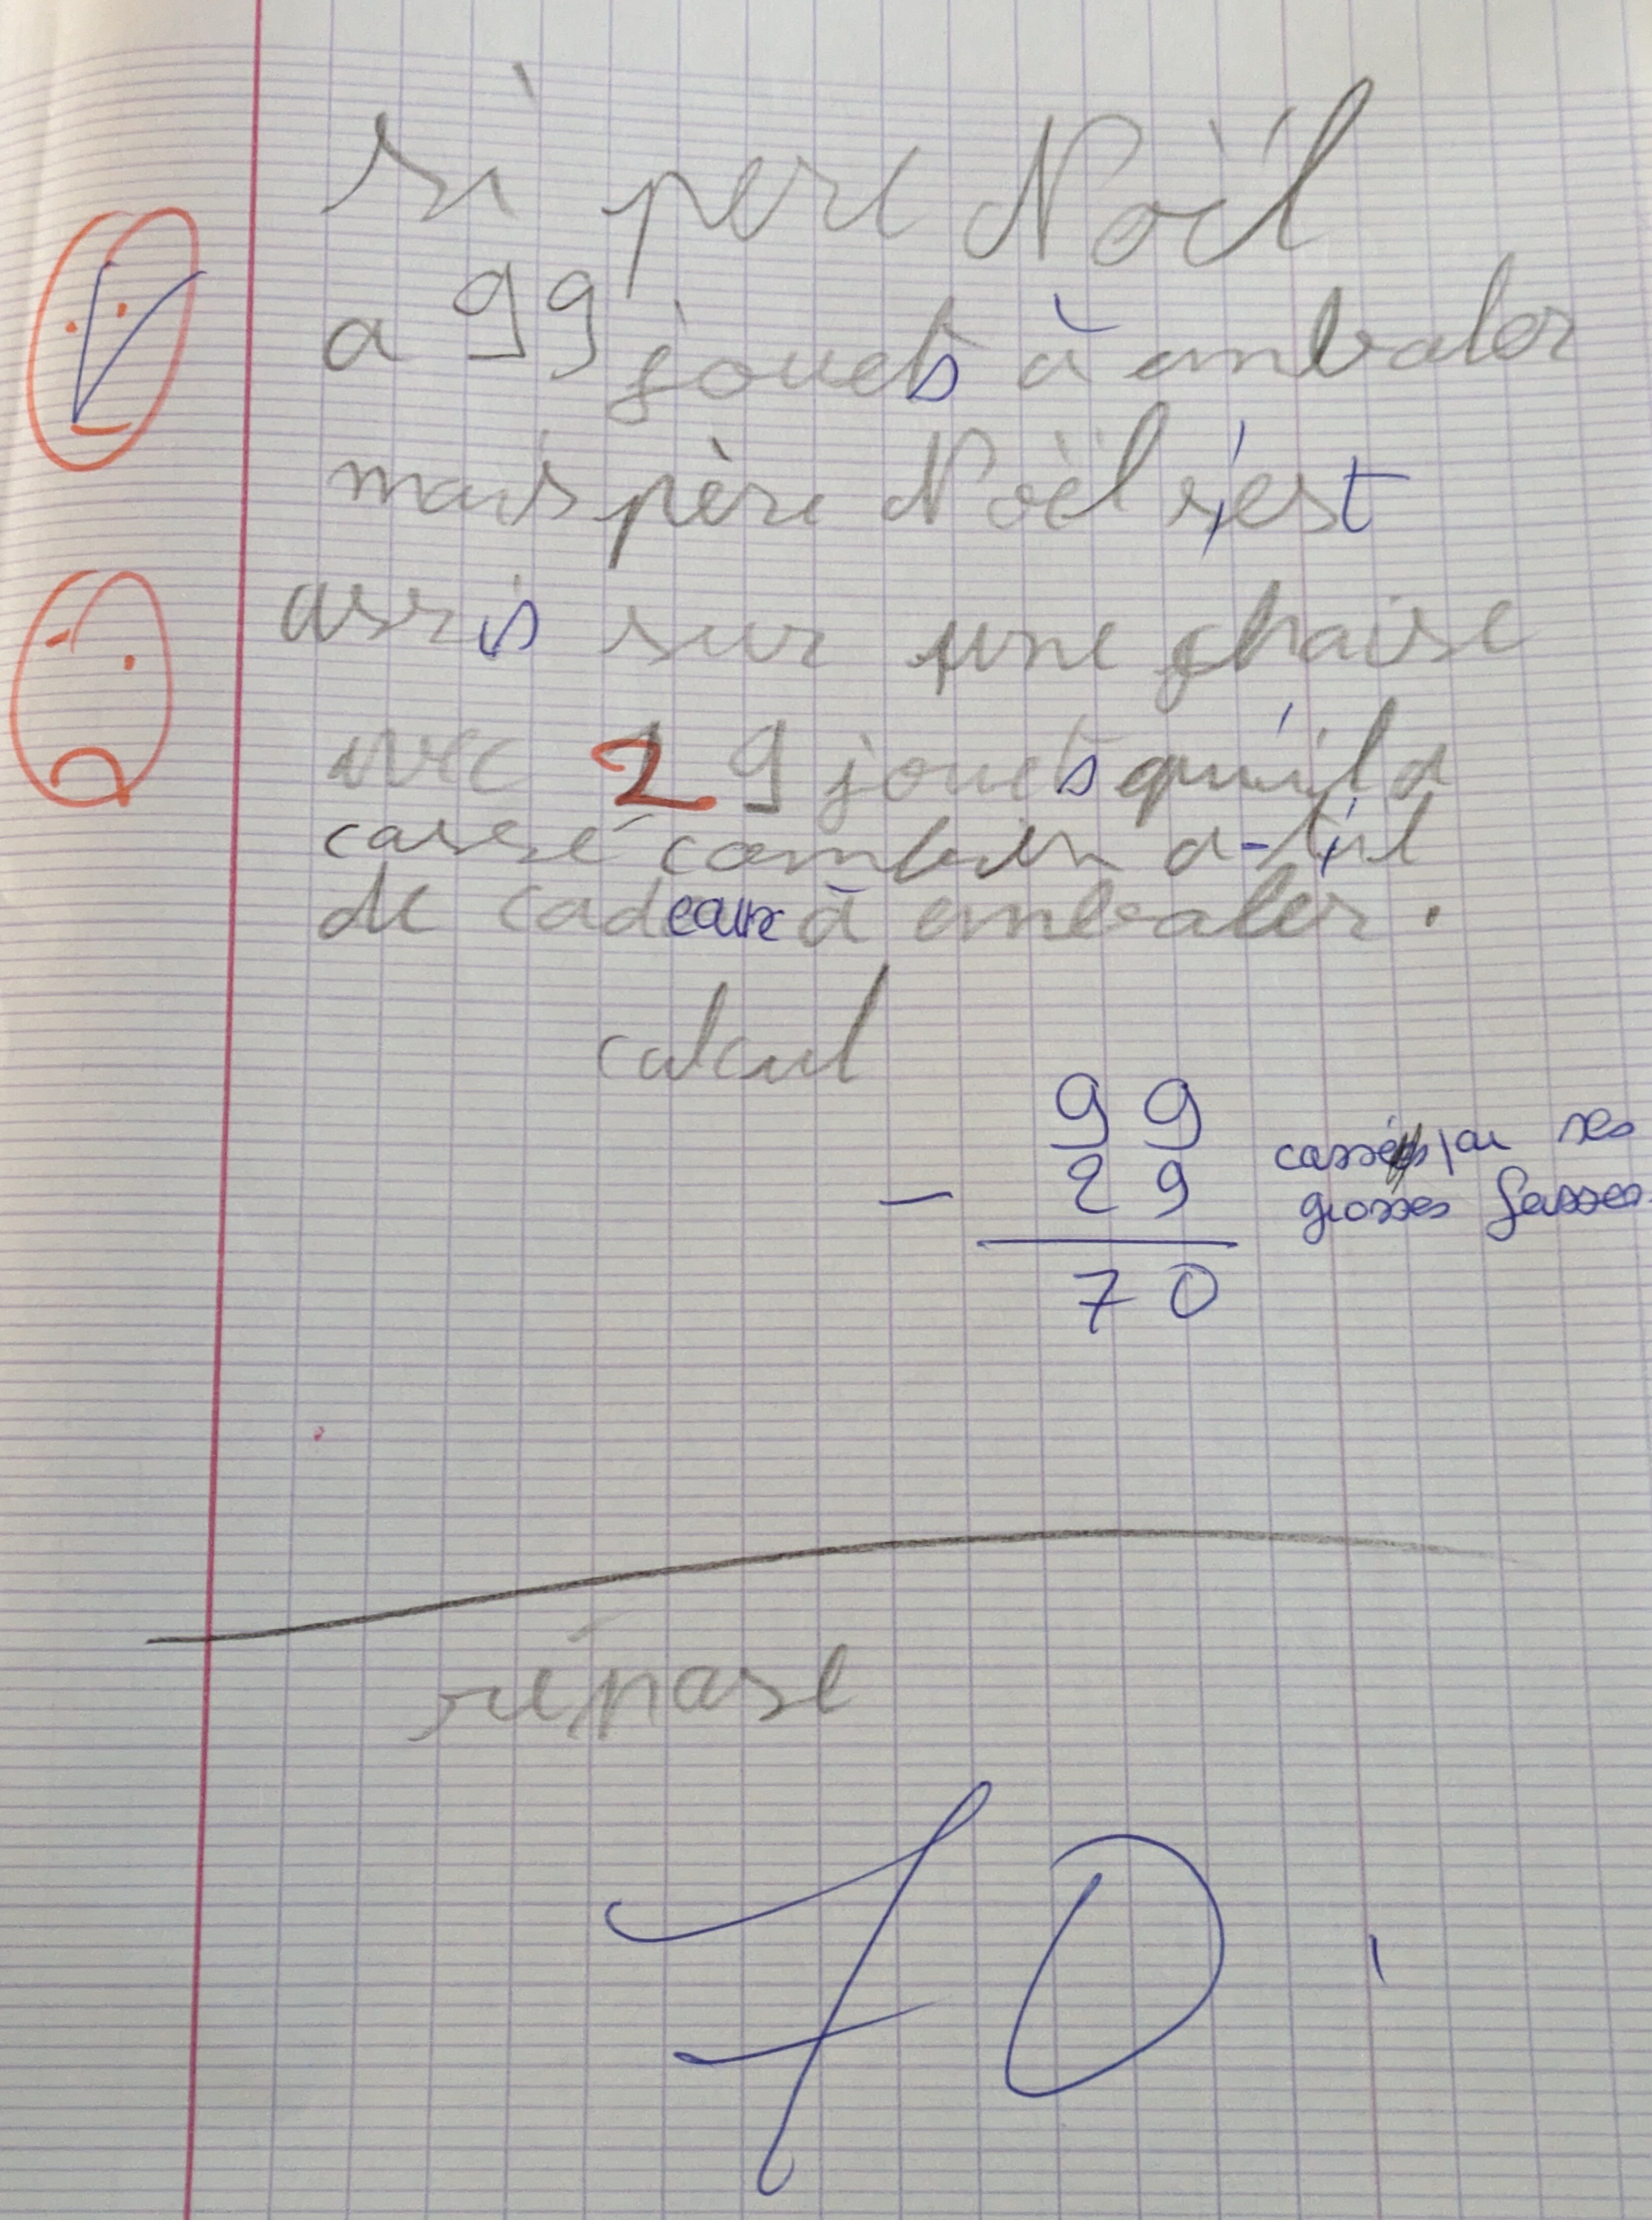 si pere Noël
a 99 jouets à embaler
mais père Noël s'est
assis sur une chaise
avec 29 jouets qu'il a
cassé combien a-t-il
de cadeaux à embaler.
calcul
99
- 29 cassés par ses
grosses fesses
70
réponse
70